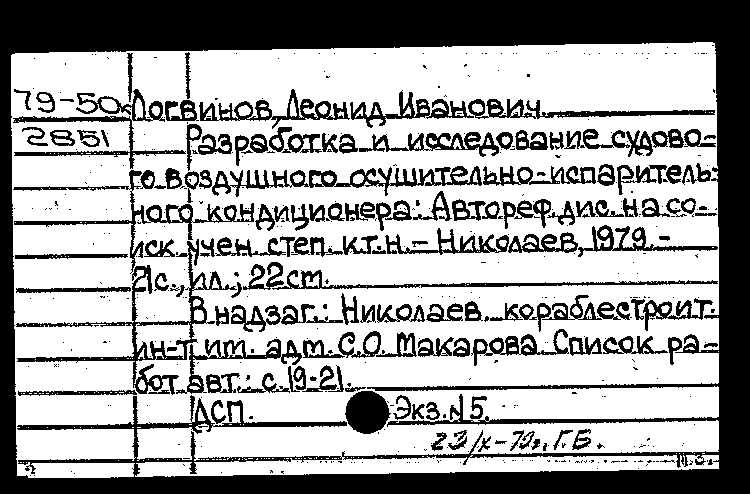 79-50 Логвинов, Леонид Иванович.
2851 Разработка и исследование судово-
го воздушного осушительно-испаритель-
ного кондиционера: Автореф. дис. на со-
иск. учен. степ. к.т.н. - Николаев, 1979. -
21с., ил.; 22см.
В надзаг.: Николаев. кораблестроит.
ин-т им. адм. С.О. Макарова. Список ра-
бот авт.: с. 19-21.
ДСП. Экз. № 5.
23/X-79г. Г.Б.